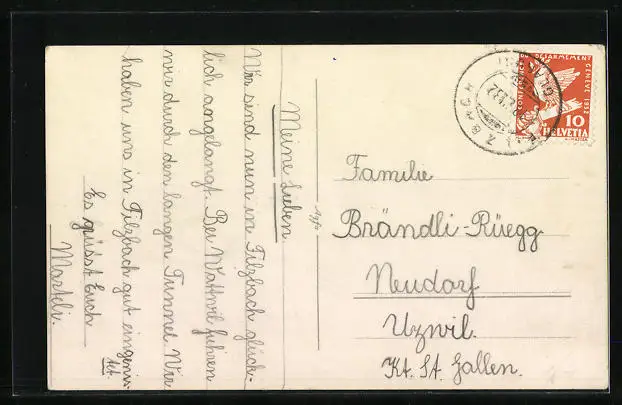 Meine Lieben
Wir sind nun in Filzbach glück-
lich angelangt. Bei Wattwil fuhren
wir durch den langen Tunnel. Wir
haben uns in Filzbach gut eingerich-
tet.
Es grüsst Euch
Marteli.
CONFERENCE DU DESARMEMENT GENEVE 1932
10
HELVETIA
FILZBACH
Familie
Brändli-Rüegg
Neudorf
Uzwil.
Kt. St. Gallen.